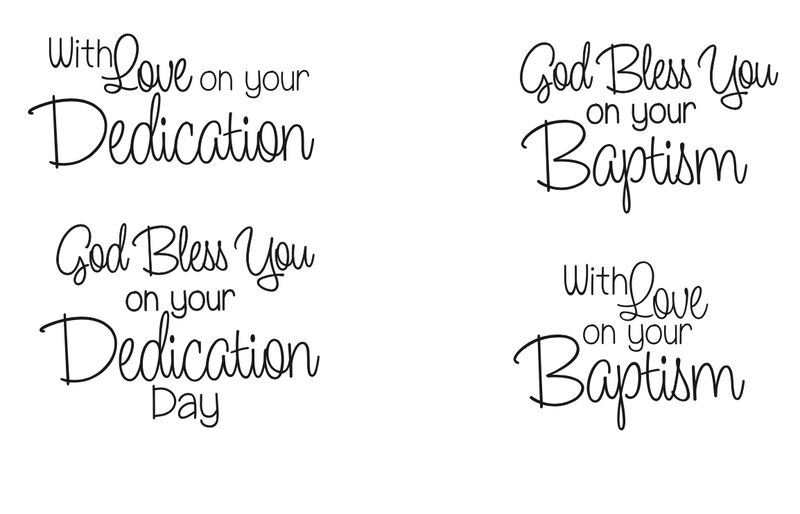 With Love on your
Dedication
God Bless You
on your
Baptism
God Bless You
on your
Dedication
Day
With Love
on your
Baptism